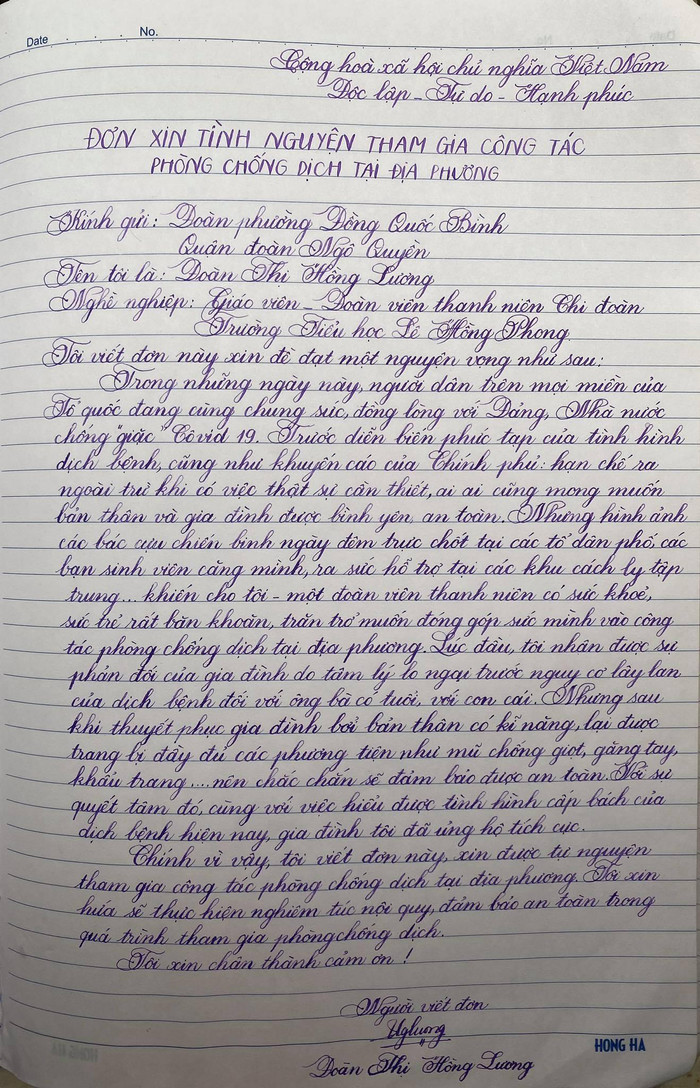 Date
No.
Cộng hoà xã hội chủ nghĩa Việt Nam
Độc lập - Tự do - Hạnh phúc
ĐƠN XIN TÌNH NGUYỆN THAM GIA CÔNG TÁC
PHÒNG CHỐNG DỊCH TẠI ĐỊA PHƯƠNG
Kính gửi: Đoàn phường Đồng Quốc Bình
Quận đoàn Ngô Quyền
Tên tôi là: Đoàn Thị Hồng Lương
Nghề nghiệp: Giáo viên - Đoàn viên thanh niên Chi đoàn
Trường Tiểu học Lê Hồng Phong
Tôi viết đơn này xin đề đạt một nguyện vọng như sau:
Trong những ngày này, người dân trên mọi miền của
Tổ quốc đang cùng chung sức, đồng lòng với Đảng, Nhà nước
chống "giặc" Côvid 19. Trước diễn biến phức tạp của tình hình
dịch bệnh, cũng như khuyến cáo của Chính phủ: hạn chế ra
ngoài trừ khi có việc thật sự cần thiết, ai ai cũng mong muốn
bản thân và gia đình được bình yên, an toàn. Nhưng hình ảnh
các bác cựu chiến binh ngày đêm trực chốt tại các tổ dân phố, các
bạn sinh viên căng mình, ra sức hỗ trợ tại các khu cách ly tập
trung... khiến cho tôi - một đoàn viên thanh niên có sức khoẻ,
sức trẻ rất băn khoăn, trăn trở muốn đóng góp sức mình vào công
tác phòng chống dịch tại địa phương. Lúc đầu, tôi nhận được sự
phản đối của gia đình do tâm lý lo ngại trước nguy cơ lây lan
của dịch bệnh đối với ông bà có tuổi, với con cái. Nhưng sau
khi thuyết phục gia đình bởi bản thân có kĩ năng, lại được
trang bị đầy đủ các phương tiện như mũ chống giọt, găng tay,
khẩu trang....nên chắc chắn sẽ đảm bảo được an toàn. Với sự
quyết tâm đó, cùng với việc hiểu được tình hình cấp bách của
dịch bệnh hiện nay, gia đình tôi đã ủng hộ tích cực.
Chính vì vậy, tôi viết đơn này, xin được tự nguyện
tham gia công tác phòng chống dịch tại địa phương. Tôi xin
hứa sẽ thực hiện nghiêm túc nội quy, đảm bảo an toàn trong
quá trình tham gia phòng chống dịch.
Tôi xin chân thành cảm ơn!
Người viết đơn
Đoàn Thị Hồng Lương
HONG HA